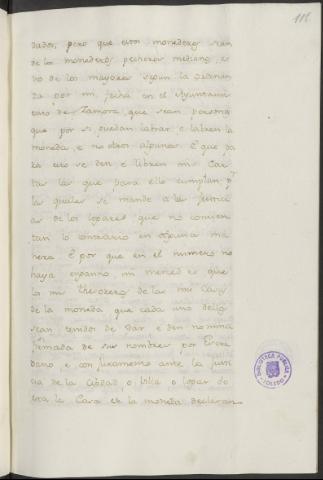 116
dados, pero que estos monederos sean
de los monederos pecheros medianos, e
no de los mayores segun la ordenan
za por mi fecha en el Ayuntami
ento de Zamora, que sean personas
que por si puedan labrar, e labren la
moneda, e no otros algunos. E que pa
ra esto se den e libren mis Car
tas las que para ello cumplan, por
las quales se mande a las Justici
as de los logares que no consien
tan lo contrario en alguna ma
nera. E por que en el numero no
haya engaño, mi merced es que
los mis thesoreros de las mis Casas
de la moneda que cada uno dellos
sean tenidos de dar e den nomina
firmada de sus nombres por Escri
bano, e con juramento ante la justi
cia de la Cibdad, o Villa, o logar do
esta la Casa de la moneda declaran
BIBLIOTECA PUBLICA
TOLEDO